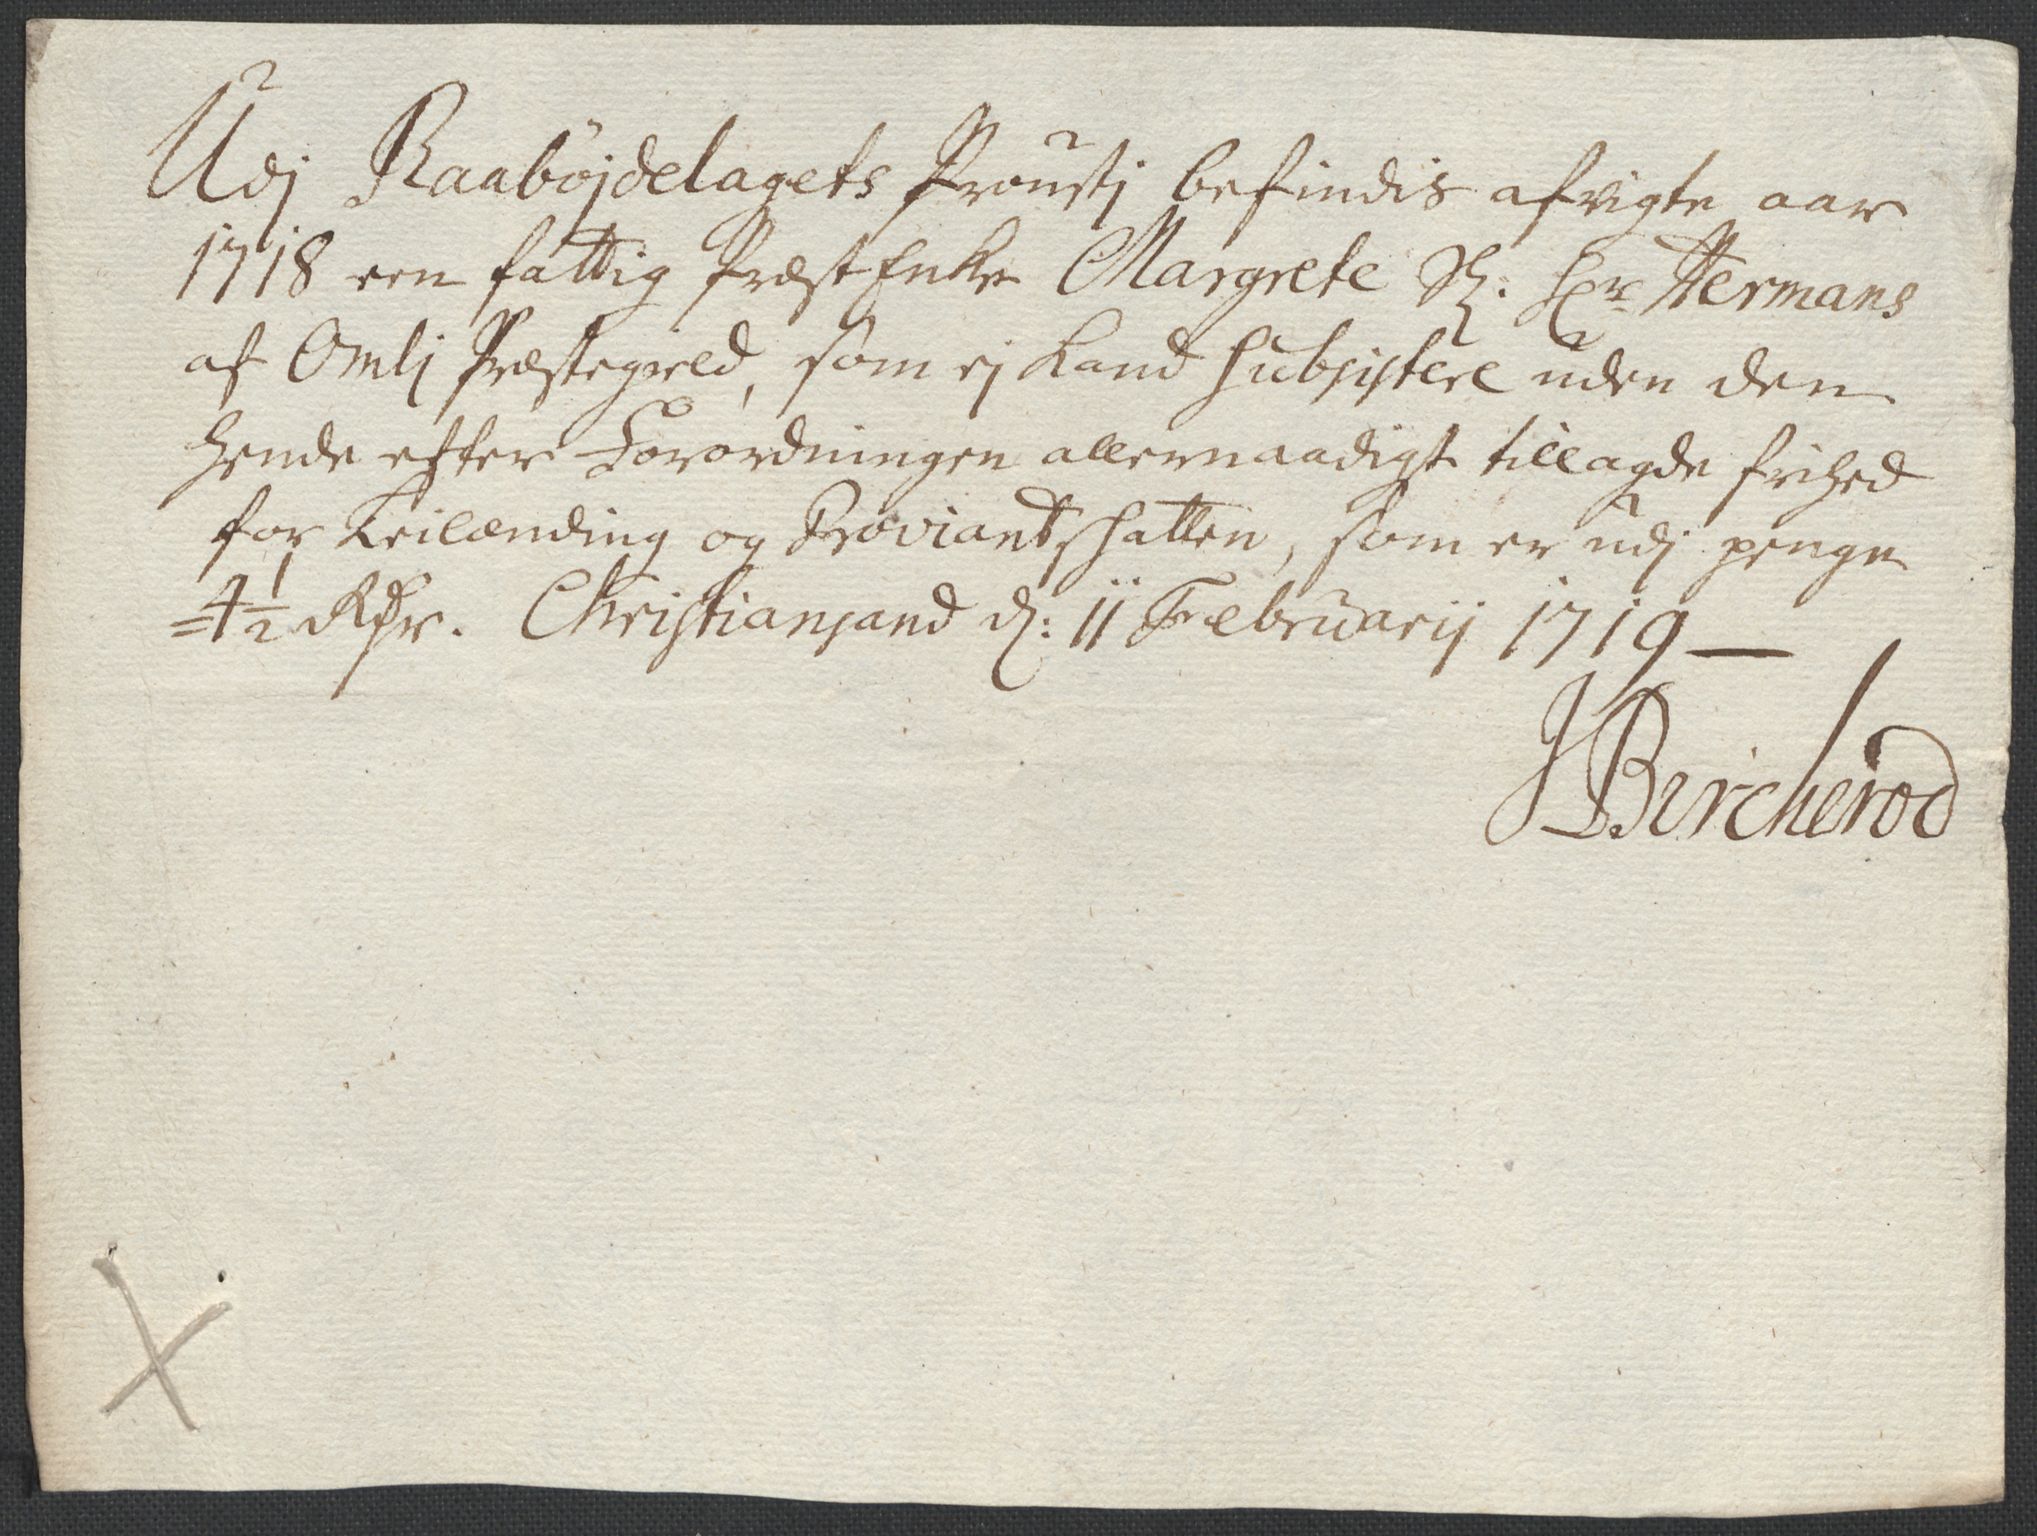 Udj Raabøjdelagets Proustj befindis afvigte aar
1718 een fattig Præst Enke Margrete Sl: Hr Hermans
af Omlj Præstegield, som ej kand subsistere uden den
hende efter Forordningen allernaadigst tillagde frihed
for Leilænding og Proviantskatten, som er udj penge
4 1/2 Rdr. Christiansand d: 11 Februarij 1719
J Bircherod